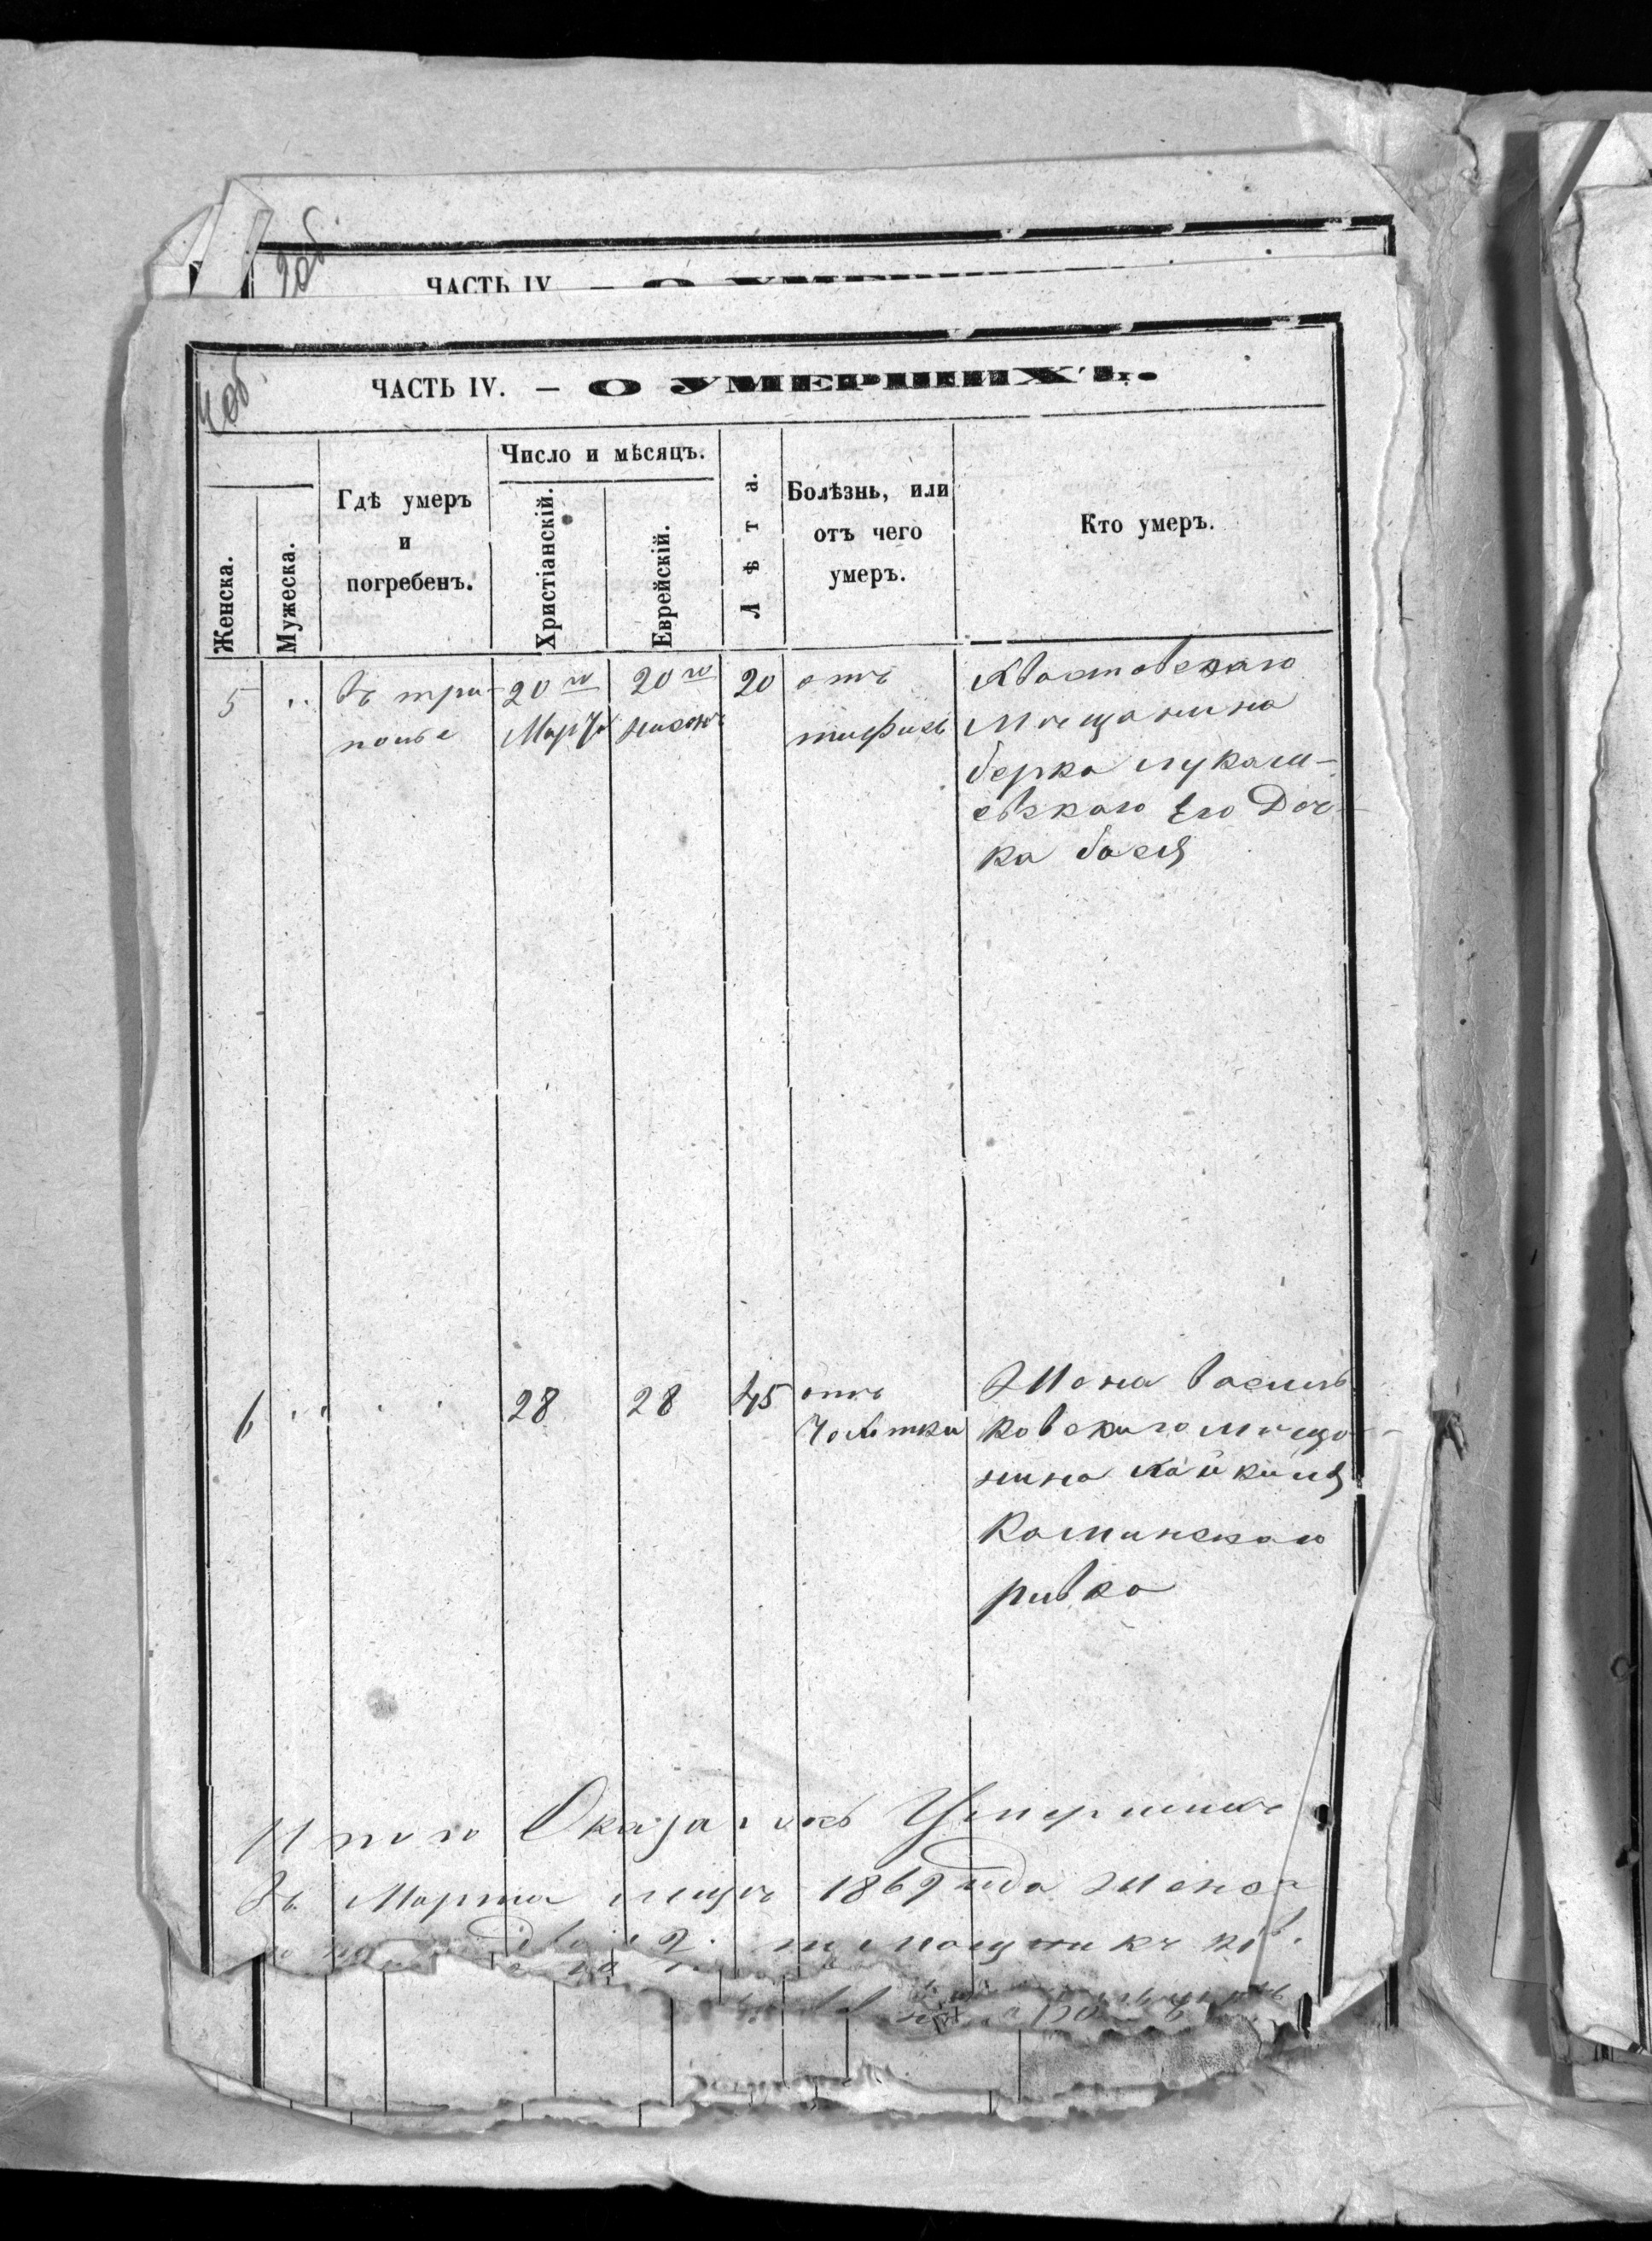 2об.
ЧАСТЬ IV. —
4об.
ЧАСТЬ IV. — О УМЕРШИХЪ.
Женска.
Мужеска.
Гдѣ умеръ
и
погребенъ.
Число и мѣсяцъ.
Христіанскій.
Еврейскій.
Лѣта.
Болѣзнь, или
отъ чего
умеръ.
Кто умеръ.
5
въ три-
полье
20го
Марта
20го
нисонъ
20
отъ
тифусъ
Хвастовскаго
Мещанина
берка лукаш-
евскаго Его Доч-
ка бася
6
28
28
45
отъ
Чахотки
Жена василь
ковскаго меща-
нина
Каминскаго
ривка
Итого Оказалось Умершихъ
въ Марта месяце 1869 года женска
2.